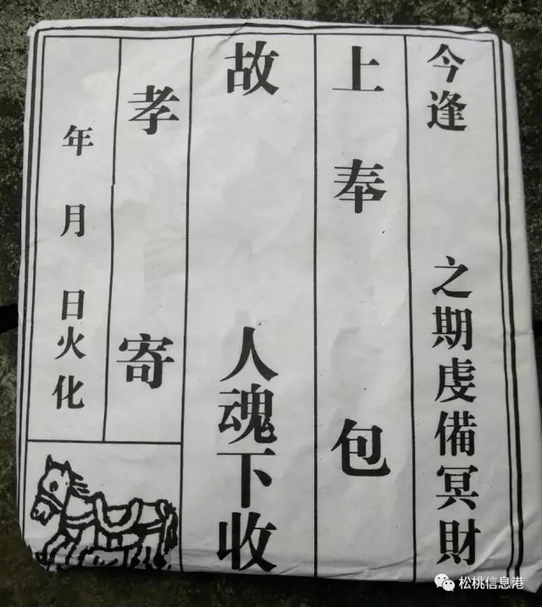 今逢 之期虔備冥財
上奉 包
故 人魂下收
孝 寄
年 月 日火化
松桃信息港